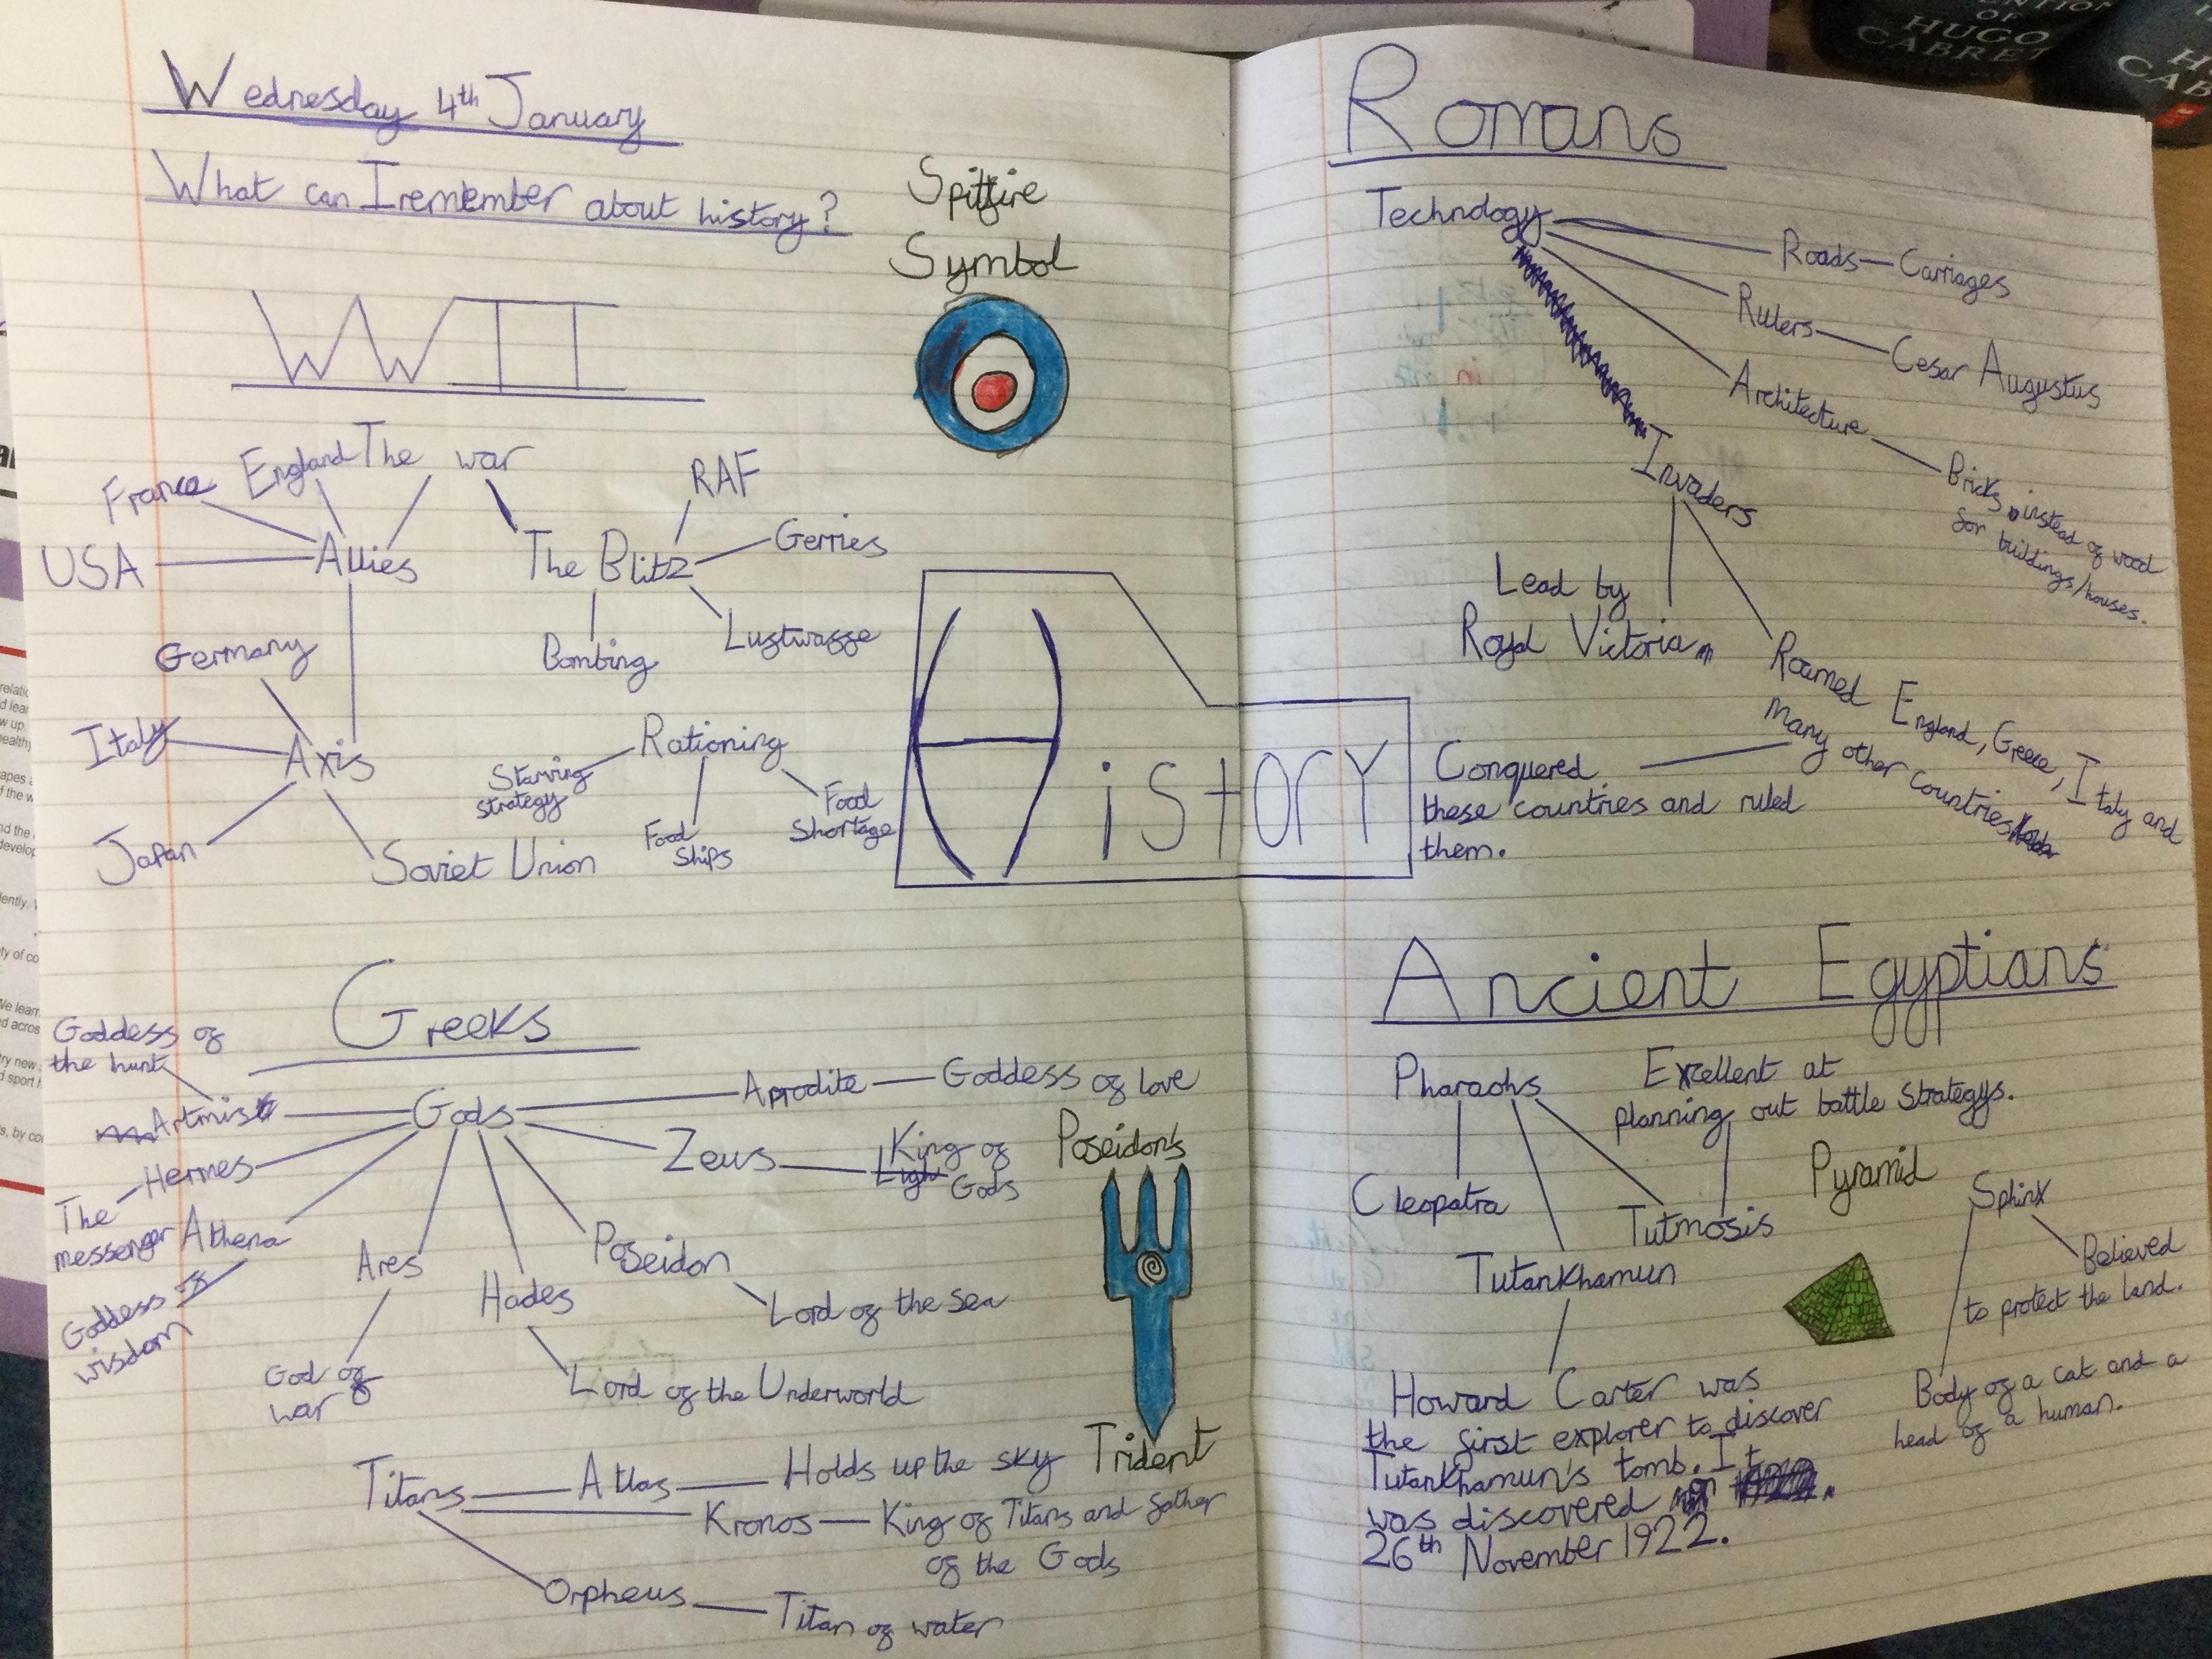 Wednesday 4th January
What can I remember about history?
Spitfire
Symbol
WWII
The war
France
England
USA
Allies
Germany
Italy
Axis
Japan
Soviet Union
The Blitz
RAF
Gerries
Luftwaffe
Bombing
Rationing
Starving
strategy
Food
Ships
Food
Shortage
History
Greeks
Gods
Goddess of
the hunt
Artmis
Hermes
The
messenger
Athena
Goddess of
wisdom
Ares
God of
war
Hades
Lord of the Underworld
Poseidon
Lord of the sea
Zeus
Light
King of
Gods
Aprodite
Goddess of love
Poseidon's
Trident
Titans
Atlas
Holds up the sky
Kronos
King of Titans and father
of the Gods
Orpheus
Titan of water
Romans
Technology
Roads
Carriages
Rulers
Cesar Augustus
Architecture
Bricks, instead of wood
for buildings/houses.
Invaders
Lead by
Royal Victoria
Roamed England, Greece, Italy and
many other countries
Conquered
these countries and ruled
them.
Ancient Egyptians
Pharaohs
Cleopatra
Tutankhamun
Tutmosis
Excellent at
planning out battle strategys.
Howard Carter was
the first explorer to discover
Tutankhamun's tomb. It
was discovered on
26th November 1922.
Pyramid
Sphinx
Believed
to protect the land.
Body of a cat and a
head of a human.
OF
HUGO
CABRET
CAB